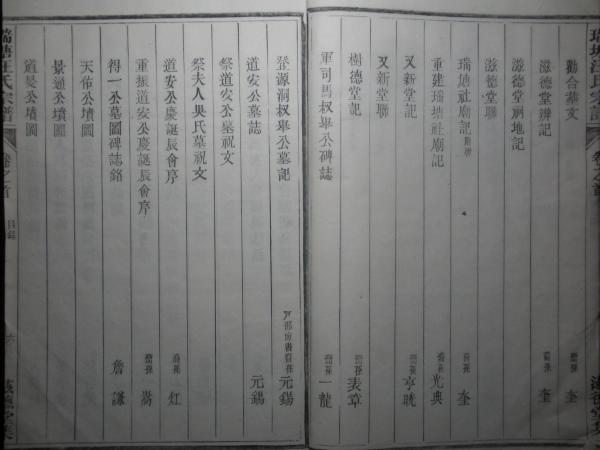 勸合墓文 裔孫 奎
滋德堂辨記 裔孫 奎
滋德堂祠地記
滋德堂聯
瑞塘社廟記 附聯 裔孫 奎
重建瑞塘社廟記 裔孫 光典
又新堂記 裔孫 亨晄
又新堂聯
樹德堂記 裔孫 表章
軍司馬叔舉公碑誌 裔孫 一龍
登源洞叔舉公墓記 戶部尚書裔孫 元錫
道安公墓誌 元錫
祭道安公墓祝文
祭夫人吳氏墓祝文
道安公慶誕辰會序 裔孫 灴
重振道安公慶誕辰會序 裔孫 嵩
得一公墓圖碑誌銘 詹謙
天佑公墳圖
景通公墳圖
道旻公墳圖
瑞塘汪氏宗譜
卷之首
目錄
六